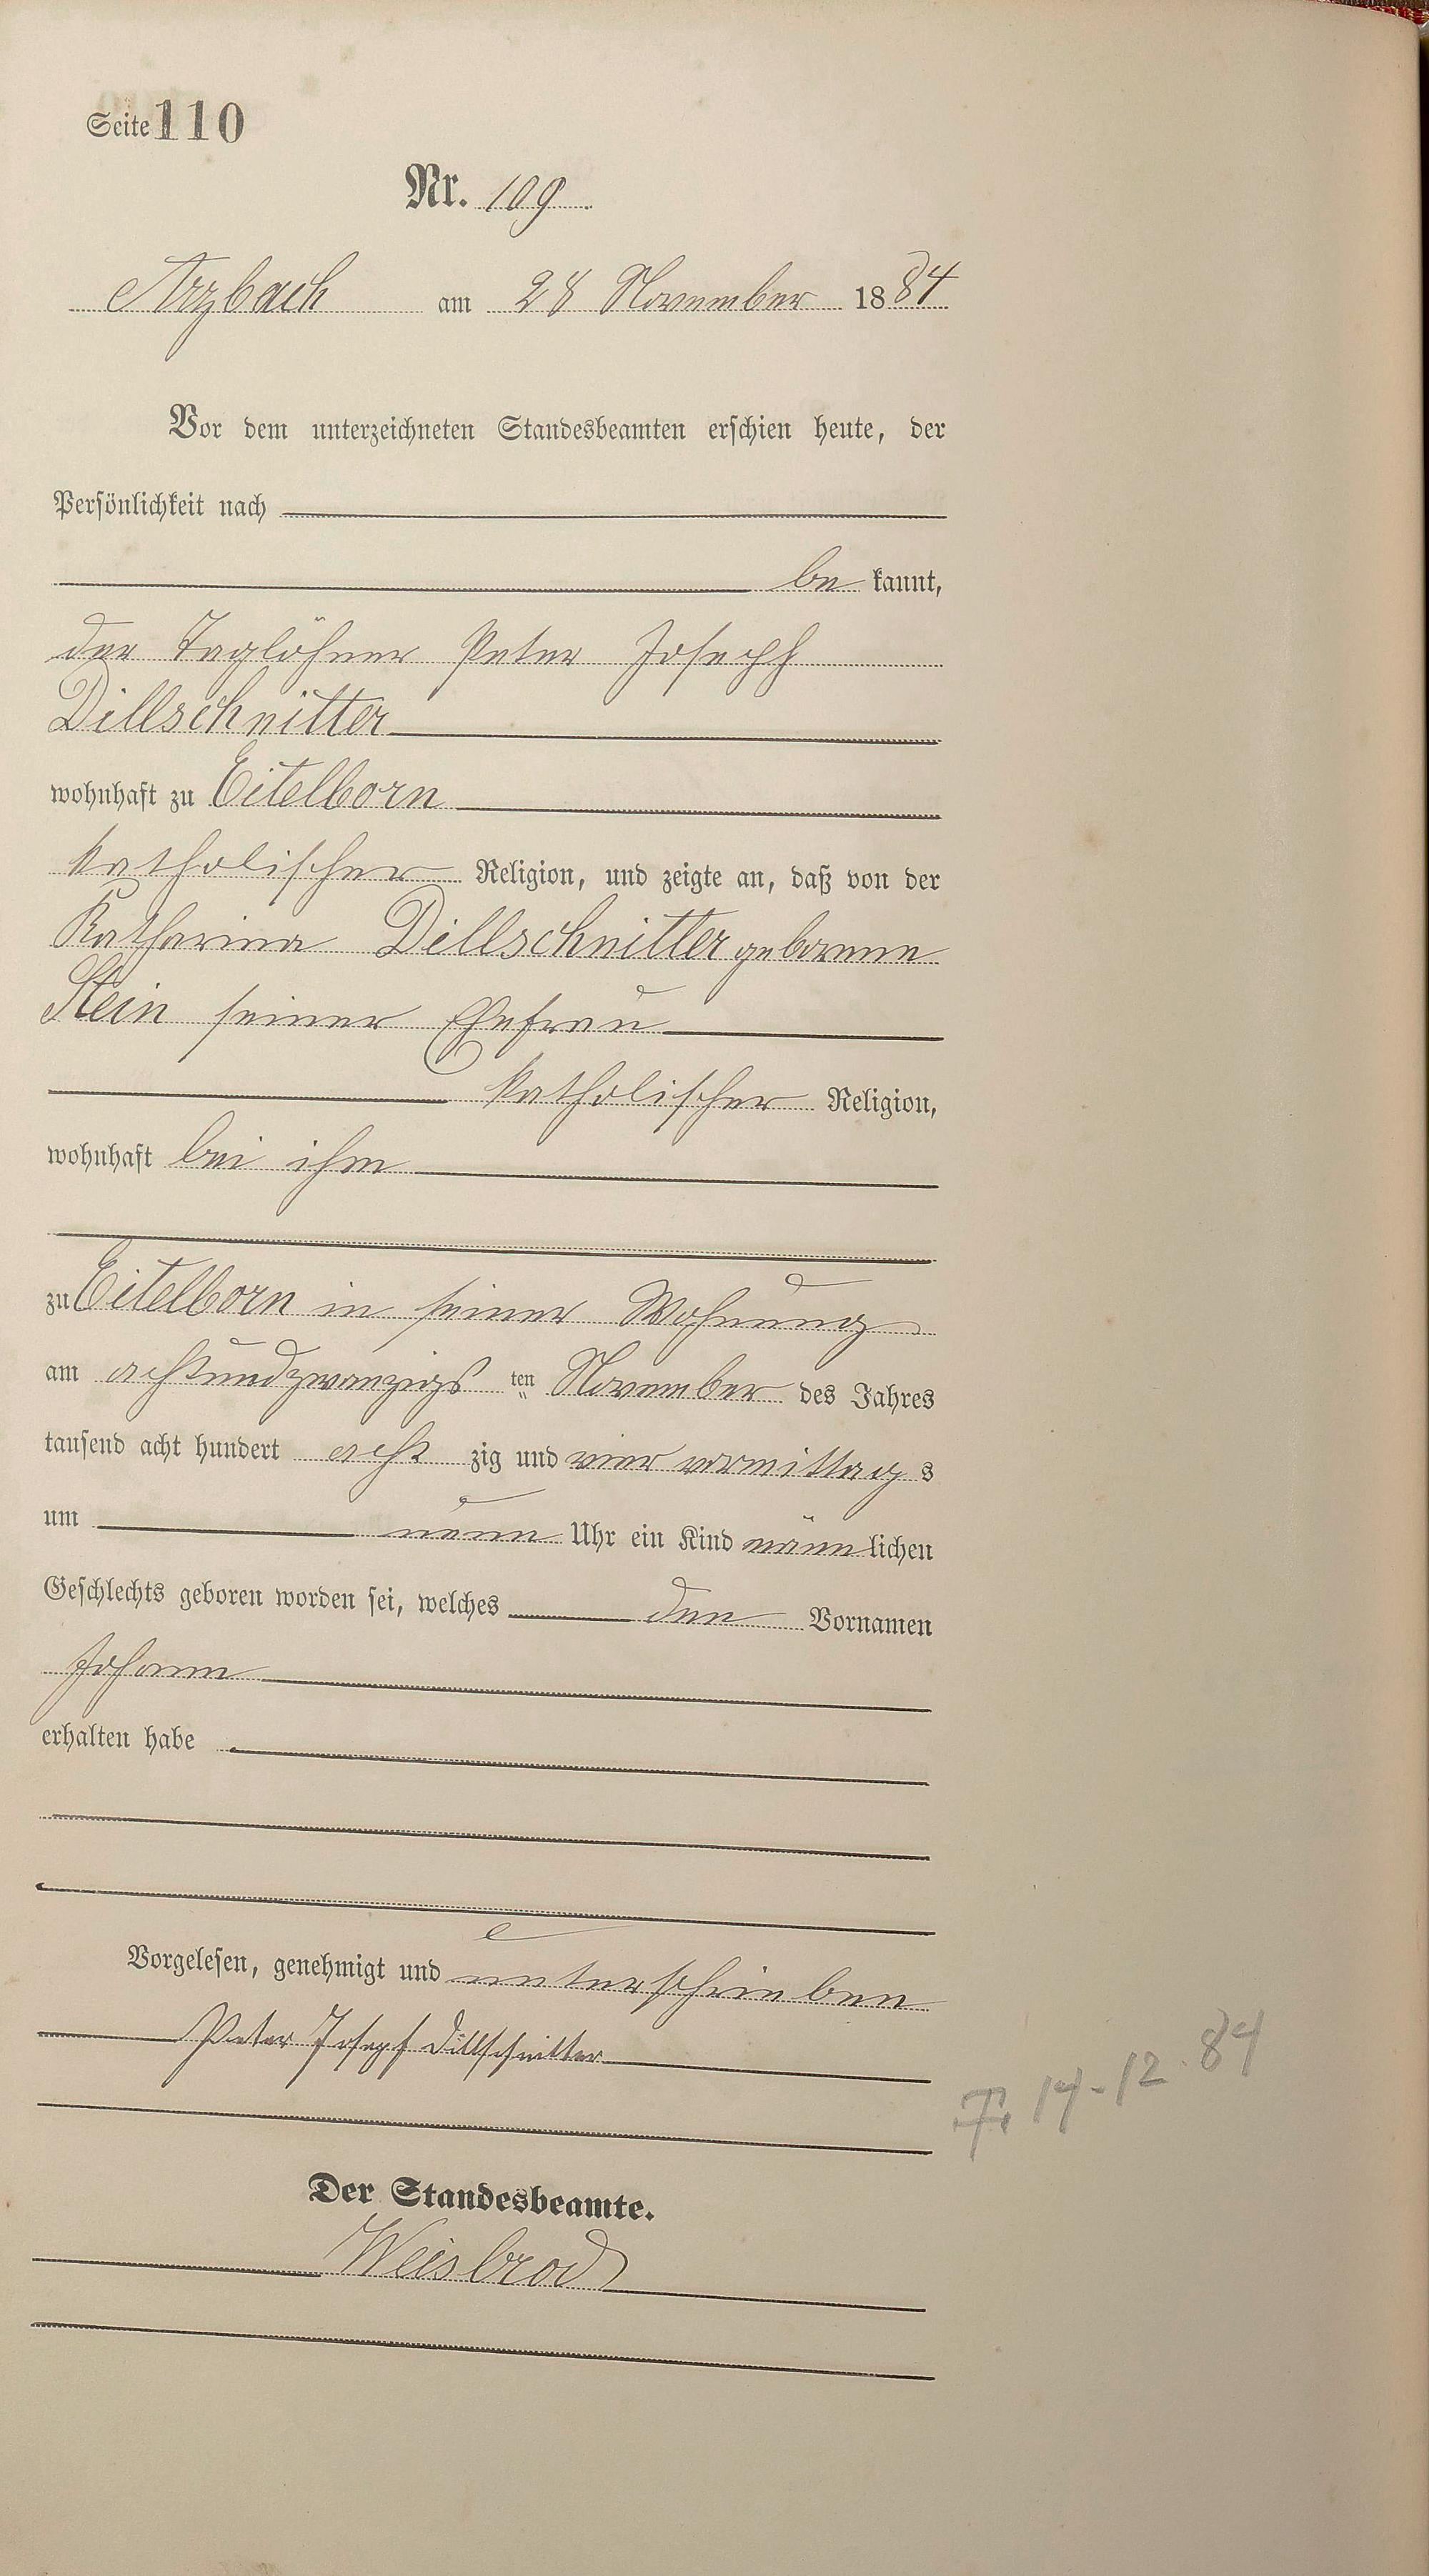 Seite 110
Nr. 109.
Arzbach am 28 November 1884
Vor dem unterzeichneten Standesbeamten erschien heute, der
Persönlichkeit nach
be kannt,
der Taglöhner Peter Joseph
Dillschnitter
wohnhaft zu Eitelborn
katholischer Religion, und zeigte an, daß von der
Katharina Dillschnitter geborene
Stein seiner Ehefrau
katholischer Religion,
wohnhaft bei ihm
zu Eitelborn in seiner Wohnung
am achtundzwanzigs ten November des Jahres
tausend acht hundert acht zig und vier vormittag s
um neun Uhr ein Kind männ lichen
Geschlechts geboren worden sei, welches den Vornamen
Johann
erhalten habe
Vorgelesen, genehmigt und unterschrieben
Peter Josepf Dillschnitter
14-12.84
Der Standesbeamte.
Weisbrod